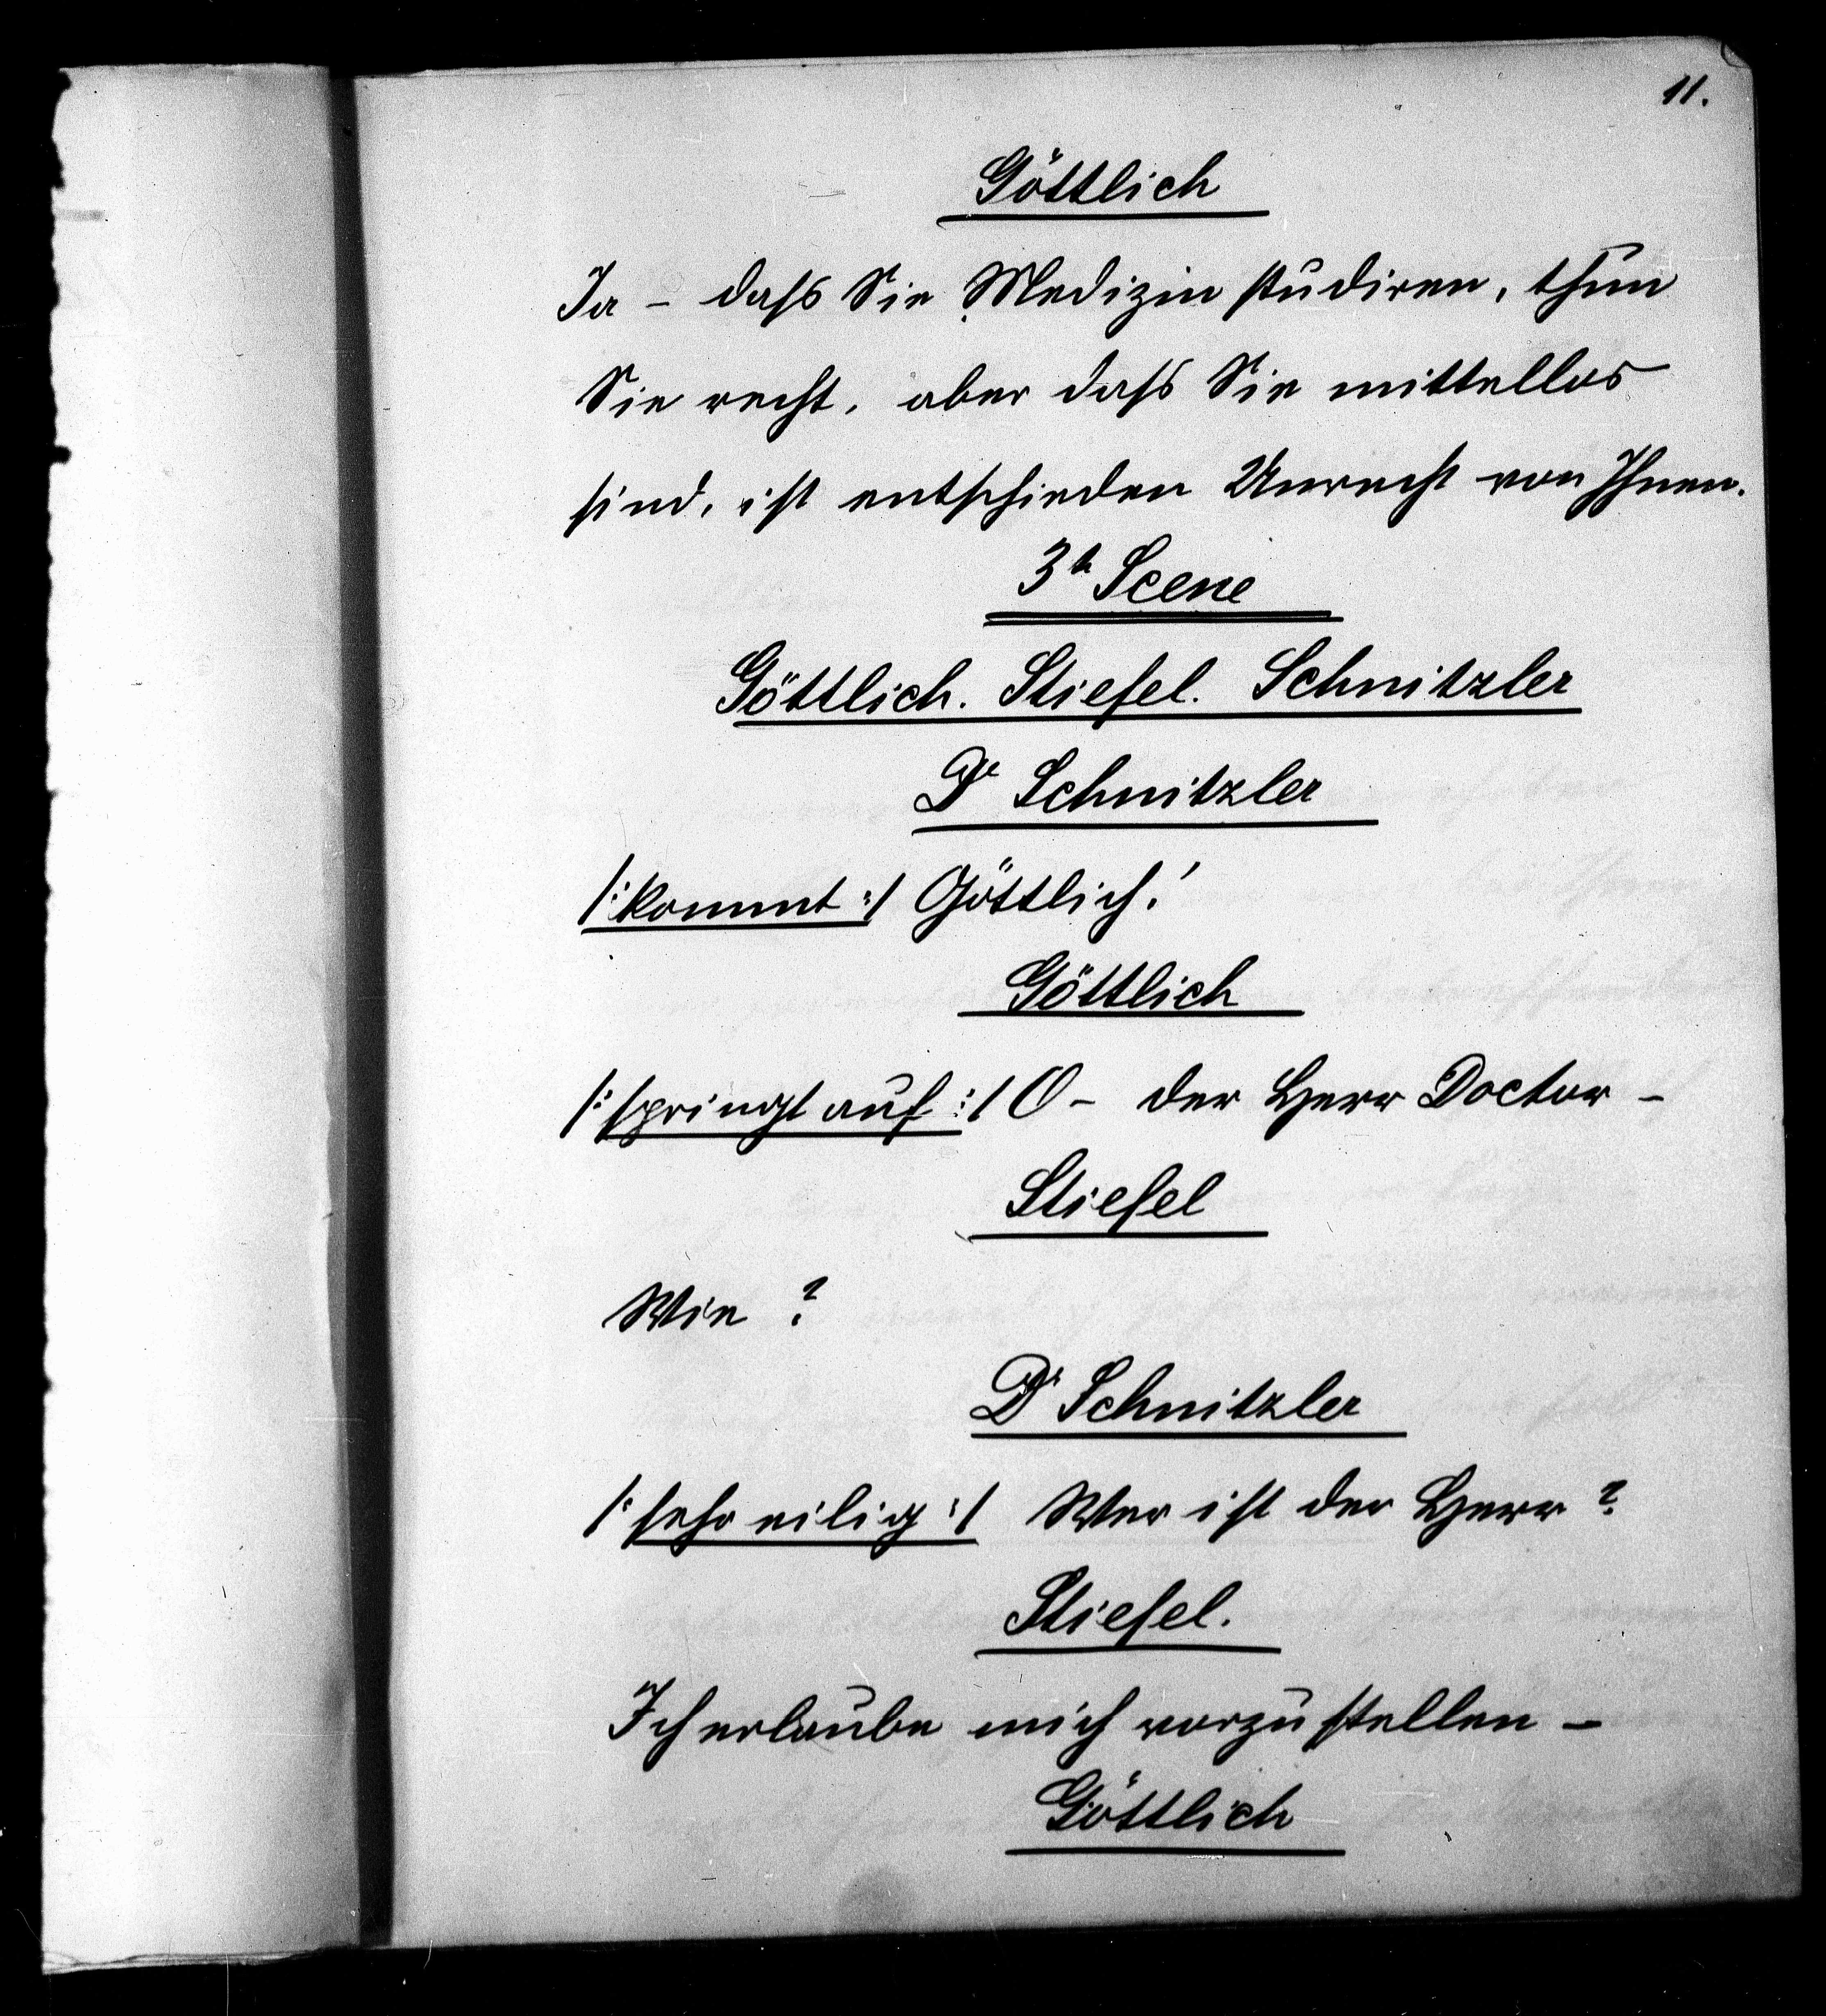 11.
Göttlich
Ja – daſs Sie Medizin studiren, thun
Sie recht, aber daſs Sie mittellos
sind, ist entschieden Unrecht von Ihnen.
3te Scene
Göttlich. Stiefel. Schnitzler
Dr Schnitzler
/: kommt :/ Göttlich!
Göttlich
/: springt auf :/ O – der Herr Doctor –
Stiefel
Wie ?
Dr Schnitzler
/: sehr eilig :/ Wer ist der Herr ?
Stiefel.
Ich erlaube mich vorzustellen –
Göttlich